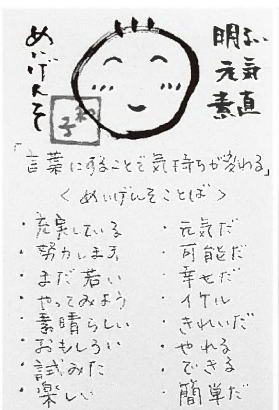 めいげんそ
明るい
元気
素直
和子
「言葉にすることで気持ちが変わる」
<めいげんそことば>
・充実している
・努力します
・まだ若い
・やってみよう
・素晴らしい
・おもしろい
・試みた
・楽しい
・元気だ
・可能だ
・幸せだ
・イケル
・きれいだ
・やれる
・できる
・簡単だ